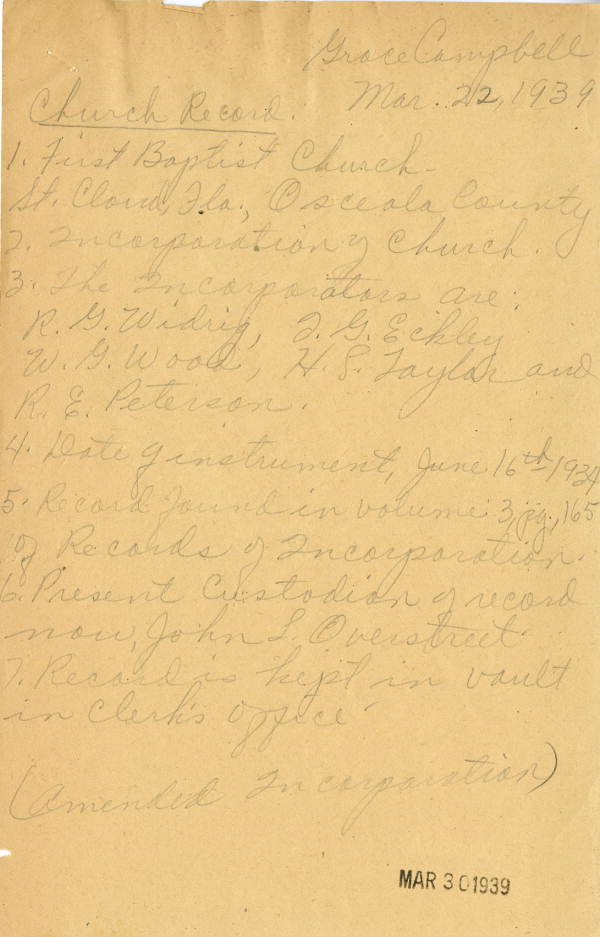 Grace Campbell
Mar. 22, 1939
Church Record.
1. First Baptist Church -
St. Cloud, Fla., Osceola County
2. Incorporation of Church.
3. The Incorporators are:
R. G. Widrig, F. G. Eckley
W. G. Wood, H. S. Taylor and
R. E. Peterson.
4. Date of instrument, June 16th-1934
5. Record found in volume 3, pg., 165
of Records of Incorporation.
6. Present Custodian of record
now, John L. Overstreet.
7. Record is kept in vault
in Clerk's office.
(Amended Incorporation)
MAR 30 1939